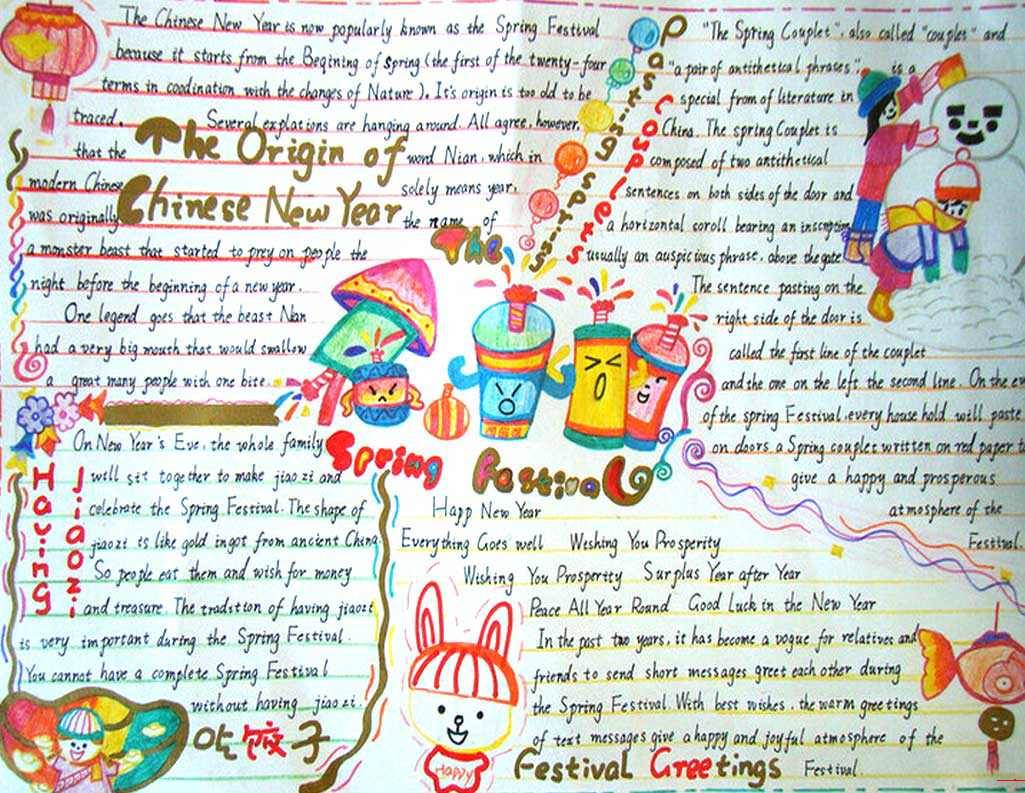 The Chinese New Year is now popularly known as the Spring Festival
because it starts from the Begining of Spring (the first of the twenty-four
terms in coodination with the changes of Nature). It's origin is too old to be
traced. Several explations are hanging around. All agree, however,
that the word Nian, which in
modern Chinese solely means year,
was originally the name of
a monster beast that started to prey on people the
night before the beginning of a new year.
One legend goes that the beast Nian
had a very big mouth that would swallow
a great many people with one bite.
The Origin of
Chinese New Year
The
Spring Festival
Pasting Spring
Couplets
"The Spring Couplet", also called "couplet" and
"a pair of antithetical phrases", is a
special from of literature in
China. The spring Couplet is
composed of two antithetical
sentences on both sides of the door and
a horizontal scroll bearing an inscription
usually an auspicious phrase, above the gate.
The sentence pasting on the
right side of the door is
called the first line of the couplet
and the one on the left the second line. On the eve
of the spring Festival, every house hold will paste
on doors a Spring couplet written on red paper to
give a happy and prosperous
atmosphere of the
Festival.
Having
Jiaozi
On New Year's Eve, the whole family
well sit together to make jiao zi and
celebrate the Spring Festival. The shape of
jiaozi is like gold ingot from ancient China.
So people eat them and wish for money
and treasure. The tradition of having jiaozi
is very important during the Spring Festival.
You cannot have a complete Spring Festival
without having jiao zi.
吃饺子
Happ New Year
Everything Goes well Wishing You Prosperity
Wishing You Prosperity Surplus Year after Year
Peace All Year Round Good Luck in the New Year
In the past two years, it has become a vogue for relatives and
friends to send short messages greet each other during
the Spring Festival. With best wishes, the warm greetings
of text messages give a happy and joyful atmosphere of the
Festival.
Festival Greetings
HAPPY